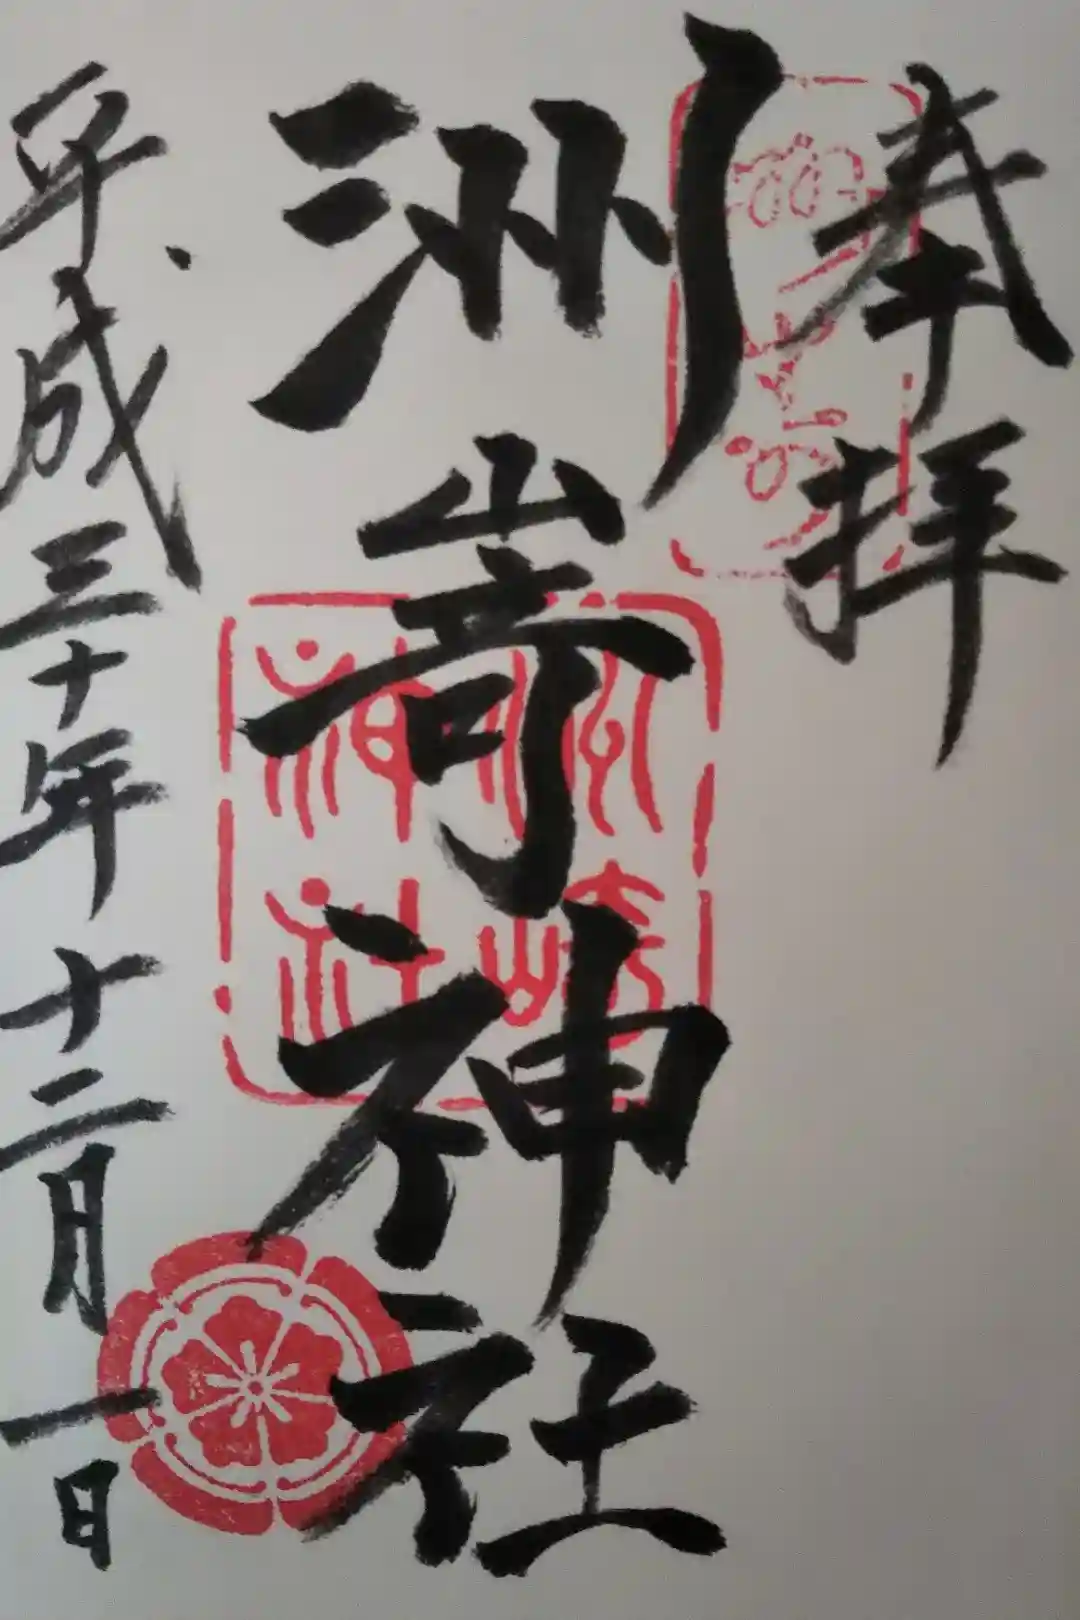 奉拝
洲嵜神社
洲崎神社
平成三十年十二月一日